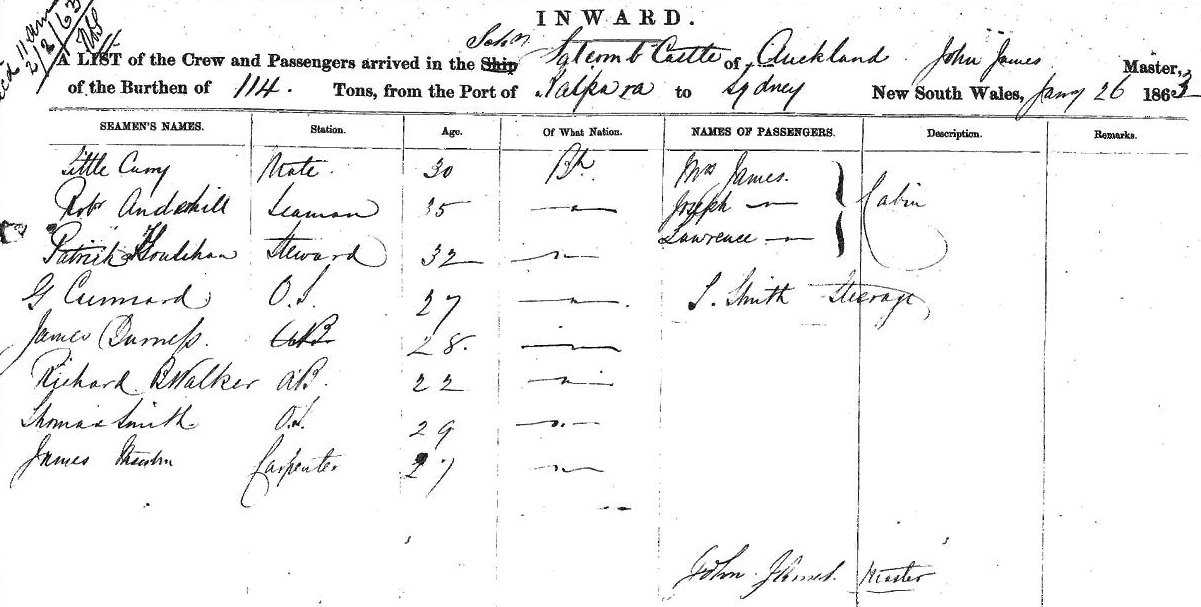 INWARD.
Recd 11 am
2/2/63
Schr
A LIST of the Crew and Passengers arrived in the Ship Salcomb Castle of Auckland John James Master,
of the Burthen of 114. Tons, from the Port of Kaipara to Sydney New South Wales, Jany 26 1863
SEAMEN'S NAMES. Station. Age. Of What Nation. NAMES OF PASSENGERS. Description. Remarks.
Little Curry Mate. 30 Bh. Mrs James.
Robt Anderhill Seaman 35 — " — Joseph — " — Cabin
Patrick Houlehan Steward 32 — " — Lawrence — " —
G Cunnard O.S. 27 — " — S. Smith Steerage
James Durness. AB 28. — " —
Richard Walker AB. 22 — " —
Thomas Smith O.S. 29 — " —
James Carpenter 27 — " —
John James. Master